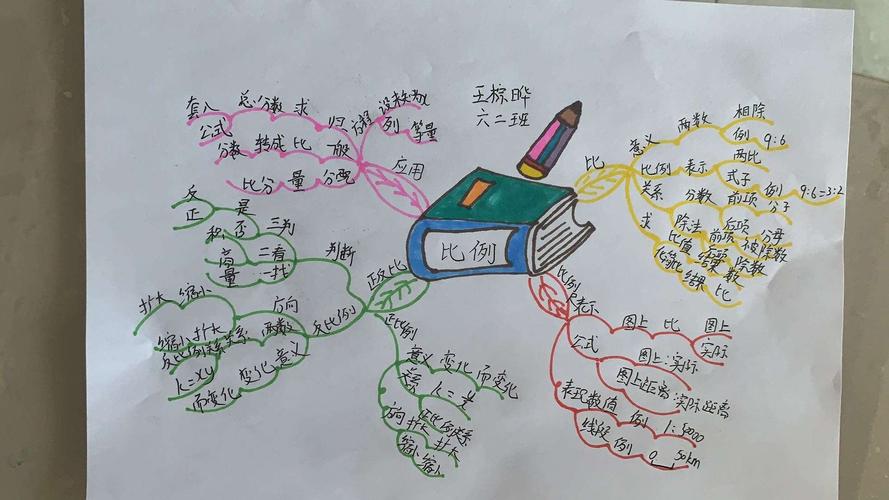 王棕晔
六二班
比例
应用
归一般
方程
设未知数
列 等量
套入 总分数 求
公式
分数 转成 比
比分 量 分配
比
意义 两数 相除
例 9:6
比例 表示 两比
式子 例 9:6=3:2
关系 分数 前项 分子
后项 分母
除法 前项 被除数
后项 除数
求 比值 结果 数
化简比 结果 比
正反比
判断
三判 是 正
否 反
二看 积 商
一找 量
反比例
方向 缩小 扩大
扩大 缩小
两数 关系 反比例关系
k=xy
意义 变化 而变化
正比例
意义 变化 而变化
关系
正比例关系
方向 扩大 扩大
缩小 缩小
比例尺
表示 图上 比 图上
实际
公式 图上:实际
图上距离:实际距离
表现 数值 例 1:5000
线段 例 0 50km